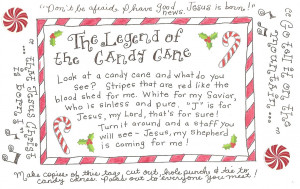 "Don't be afraid, I have good news. Jesus is born!"
The Legend of
the Candy Cane
Look at a candy cane and what do you
see? Stripes that are red like the
blood shed for me. White for my Savior,
who is sinless and pure. "J" is for
Jesus, my Lord, that's for sure!
Turn it around and a staff you
will see - Jesus, my Shepherd
is coming for me!
Go tell it on the
mountain...
... that Jesus Christ
is born
Make copies of this tag, cut out, hole punch & tie to
candy canes. Pass out to everyone you meet!